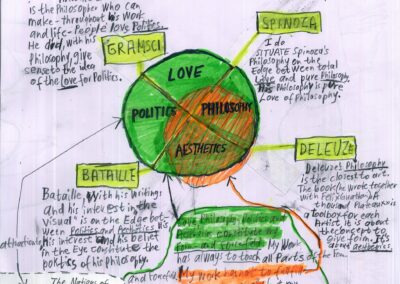 is the Philosopher who can
make - throughout his work
and life - People love Politics.
He did, with his
Philosophy, give
sense to the idea
of the love for Politics.
GRAMSCI
SPINOZA
I do
SITUATE Spinoza's
Philosophy on the
Edge between total
Love and pure Philosophy
His Philosophy is pure
Love of Philosophy.
LOVE
POLITICS
PHILOSOPHY
AESTHETICS
BATAILLE
Bataille, with his writings
and his interest in the
Visual is on the Edge bet-
ween Politics and Aesthetics
his interest and his belief
in the Eye constitute the
politics of his philosophy.
DELEUZE
Deleuze's Philosophy
is the closest to art.
The book he wrote together
with Felix Guattari
thousand Plateaux is
a Toolbox for each
Artist. He is about
the concept to
give form. It's
about aesthetics.
Love Philosophy, Politics and
Aesthetics constitute my
form- and forcefield. My Work
has always to touch all Parts of the
My work has not to fulfill
The Notions of
and forcefield